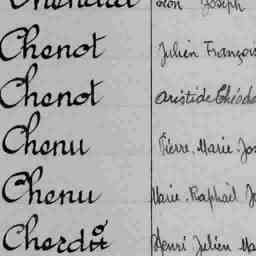 Léon Joseph
Chenot Julien François
Chenot Aristide Théodo
Chenu Pierre. Marie. Jos
Chenu Marie. Raphaël Jo
Cherdo Henri Julien Ma